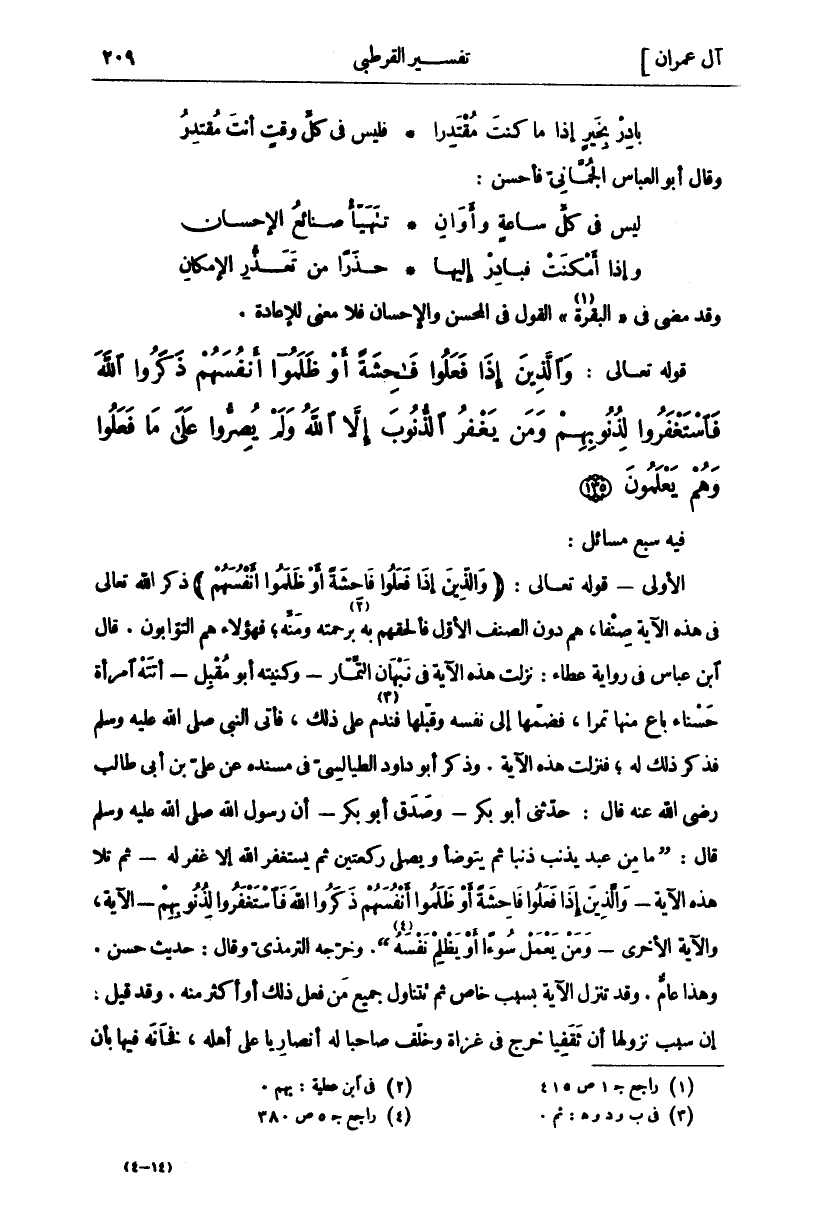 آل عمران ] تفسير القرطبي ٢٠٩
بادِرْ بِخَيرٍ إذا ما كنتَ مُقْتَدِرا * فليس فى كلّ وقتٍ أنتَ مُقتدِرُ
وقال أبو العباس الجُمّانىّ فأحسن :
ليس فى كلّ ساعةٍ وأَوَانِ * تتهيّأُ صنائعُ الإحسان
وإذا أَمْكَنَتْ فبادِرْ إليها * حذَرًا من تَعَذُّرِ الإمكانِ
وقد مضى فى « البقرة (١) » القول فى المحسن والإحسان فلا معنى للإعادة .
قوله تعالى : وَٱلَّذِينَ إِذَا فَعَلُوا فَـٰحِشَةً أَوْ ظَلَمُوٓا أَنفُسَهُمْ ذَكَرُوا ٱللَّهَ
فَٱسْتَغْفَرُوا لِذُنُوبِهِـمْ وَمَن يَغْفِرُ ٱلذُّنُوبَ إِلَّا ٱللَّهُ وَلَمْ يُصِرُّوا عَلَىٰ مَا فَعَلُوا
وَهُمْ يَعْلَمُونَ ١٣٥
فيه سبع مسائل :
الأولى – قوله تعالى : ( وَالَّذِينَ إِذَا فَعَلُوا فَاحِشَةً أَوْ ظَلَمُوا أَنْفُسَهُمْ ) ذكر الله تعالى
فى هذه الآية صِنْفا، هم دون الصنف الأوّل فألحقهم به (٢) برحمته ومَنِّه؛ فهؤلاء هم التوّابون . قال
ٱبن عباس فى رواية عطاء : نزلت هذه الآية فى نَبْهان التمّار – وكنيته أبو مُقْبِل – أتته ٱمرأة
حَسْناء باع منها تمرا ، فضمّها إلى نفسه وقبّلها (٣) فندم على ذلك ، فأتى النبى صلى الله عليه وسلم
فذكر ذلك له ؛ فنزلت هذه الآية . وذكر أبو داود الطيالسىّ فى مسنده عن علىّ بن أبى طالب
رضى الله عنه قال : حدّثنى أبو بكر – وصَدَق أبو بكر – أن رسول الله صلى الله عليه وسلم
قال : ” ما من عبد يذنب ذنبا ثم يتوضأ ويصلى ركعتين ثم يستغفر الله إلا غفر له – ثم تلا
هذه الآية – وَالَّذِينَ إِذَا فَعَلُوا فَاحِشَةً أَوْ ظَلَمُوا أَنْفُسَهُمْ ذَكَرُوا اللهَ فَٱسْتَغْفَرُوا لِذُنُوبِهِمْ – الآية ،
والآية الأخرى – وَمَنْ يَعْمَلْ سُوءًا أَوْ يَظْلِمْ نَفْسَهُ (٤) “. وخرّجه الترمذىّ وقال : حديث حسن .
وهذا عامٌّ . وقد تنزل الآية بسبب خاص ثم تتناول جميع مَن فعل ذلك أو أكثر منه . وقد قيل :
إن سبب نزولها أن ثَقَفِيا خرج فى غزاة وخلّف صاحبا له أنصاريا على أهله ، فخانَه فيها بأن
(١) راجع جـ ١ ص ٤١٥ (٢) فى ٱبن عطية : بهم .
(٣) فى ب ود وه : ثم . (٤) راجع جـ ٥ ص ٣٨٠
(٤–١٤)